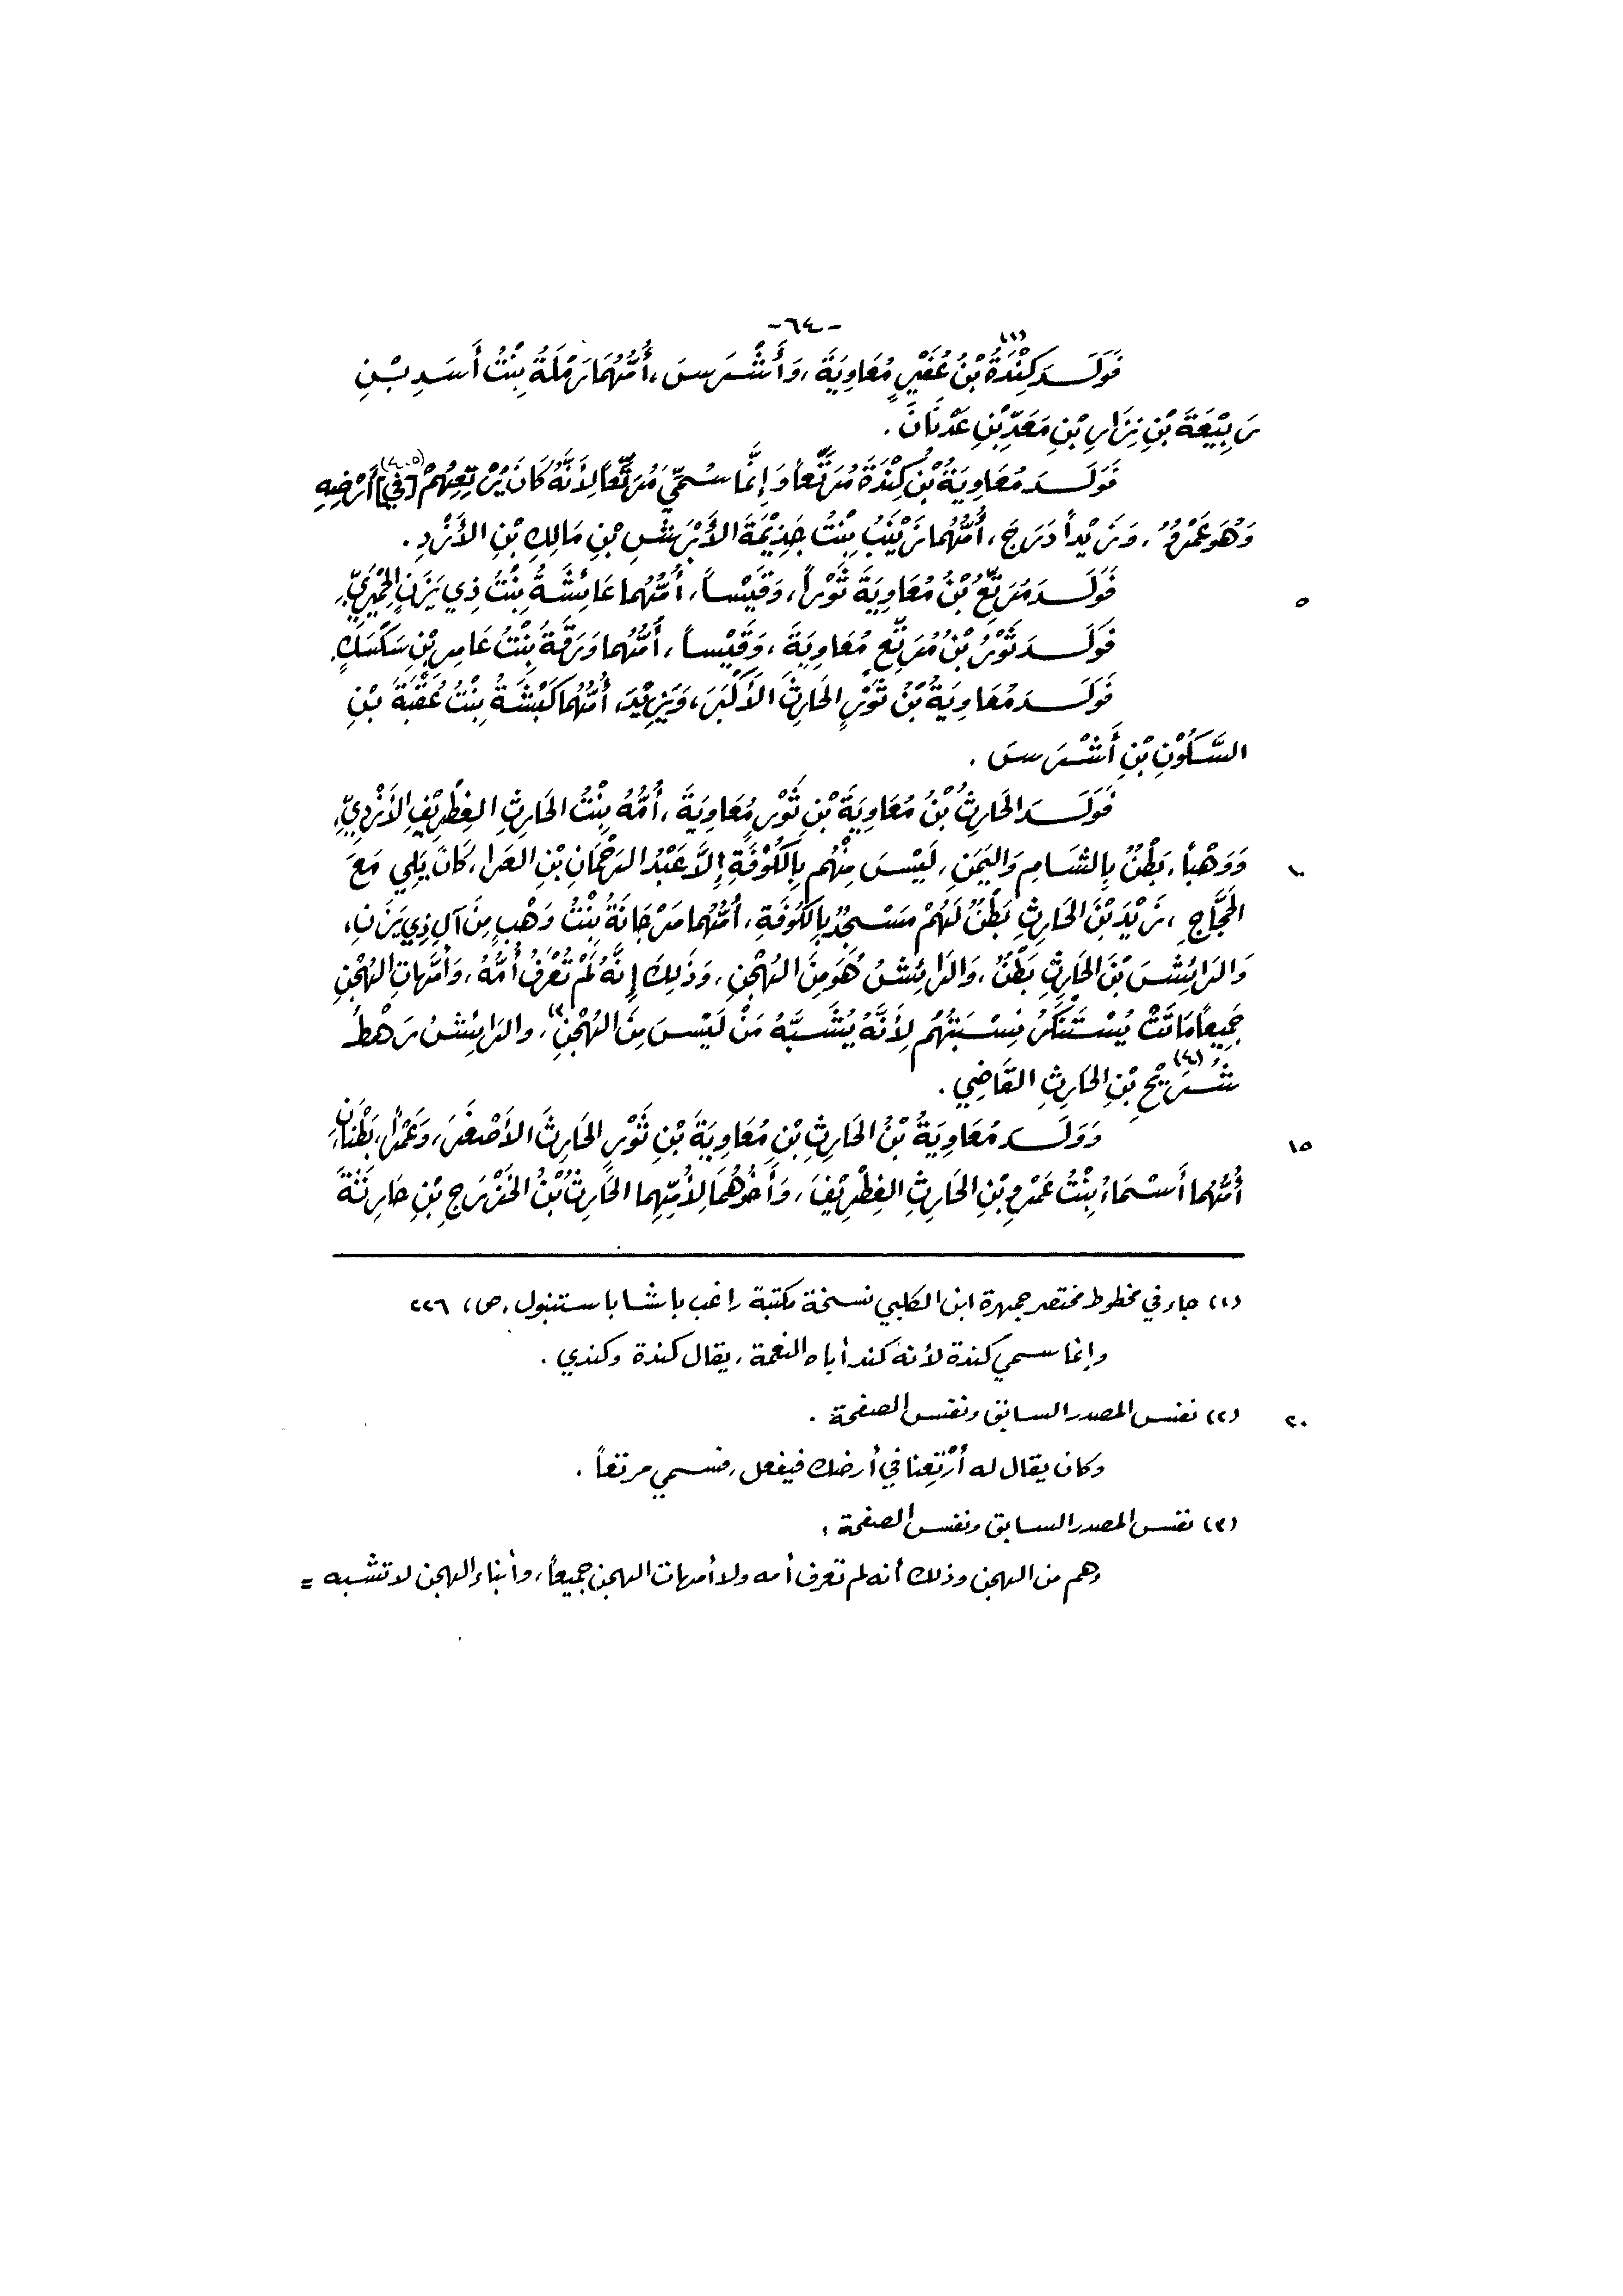 -٦٤-
فَوَلَدَ كِنْدَةُ(١) بْنُ عُفَيْرٍ مُعَاوِيَةَ، وَأَشْرَسَ، أُمُّهُمَا رَمْلَةُ بِنْتُ أَسَدِ بْنِ
رَبِيْعَةَ بْنِ نِزَارِ بْنِ مَعَدِّ بْنِ عَدْنَانَ.
فَوَلَدَ مُعَاوِيَةُ بْنُ كِنْدَةَ مُرَتِّعاً وَإِنَّمَا سُمِّيَ مُرَتِّعاً لِأَنَّهُ كَانَ يُرْتِعِهُمْ [في] أَرْضِهِ
وَهُوَ عَمْرٌو، وَزَيْداً دَرَجَ، أُمُّهُمَا زَيْنَبُ بِنْتُ جَذِيْمَةَ الأَبْرَشِ بْنِ مَالِكِ بْنِ الأَزْدِ.
فَوَلَدَ مُرَتِّعُ بْنُ مُعَاوِيَةَ ثَوْراً، وَقَيْساً، أُمُّهُما عَائِشَةُ بِنْتُ ذِي يَزَنٍ الحِمْيَرِيِّ. ٥
فَوَلَدَ ثَوْرُ بْنُ مُرَتِّعٍ مُعَاوِيَةَ، وَقَيْساً، أُمُّهُما وَرَقَةُ بِنْتُ عَامِرِ بْنِ سَكْسَكٍ.
فَوَلَدَ مُعَاوِيَةُ بْنُ ثَوْرٍ الحَارِثَ الأَكْبَرَ، وَيَزِيْدَ، أُمُّهُما كَبْشَةُ بِنْتُ عُقْبَةَ بْنِ
السَّكُوْنِ بْنِ أَشْرَسَ.
فَوَلَدَ الحَارِثُ بْنُ مُعَاوِيَةَ بْنِ ثَوْرٍ مُعَاوِيَةَ، أُمُّهُ بِنْتُ الحَارِثِ الغِطْرِيْفِ الأَزْدِيِّ،
وَوَهْباً، بَطْنٌ بِالشَّامِ وَاليَمَنِ، لَيْسَ مِنْهُم بِالكُوْفَةِ إِلَّا عَبْدُ الرَحْمَانِ بْنِ العَدا، كَانَ يَلِي مَعَ ١٠
الحَجَّاجِ، زَيْدَ بْنَ الحَارِثِ بَطْنٌ لَهُمْ مَسْجِدٌ بِالكُوفَةِ، أُمُّهُما مَرْجَانَةُ بِنْتُ وَهْبٍ مِنَ آلِ ذِي يَزَنٍ،
وَالرَائِشَ بْنَ الحَارِثِ بَطْنٌ، وَالرَائِشُ هُوَ مِنَ الهُجْنِ، وَذَلِكَ إِنَّهُ لَمْ تُعْرَفُ أُمُّهُ، وَأُمَّهَاتِ الهُجْنِ
جَمِيعاً مَاتَتْ يُسْتَنْكَرُ نِسْبَتُهُم لِأَنَّهُ يُشَبَّهُ مَنْ لَيْسَ مِنَ الهُجْنِ(٣)، والرَائِشُ رَهْطُ
شُرَيْحِ(٤) بْنِ الحَارِثِ القَاضِي.
وَوَلَدَ مُعَاوِيَةُ بْنُ الحَارِثِ بْنِ مُعَاوِيَةَ بْنِ ثَوْرٍ الحَارِثَ الأَصْغَرَ، وَعَمْراً، بَطْنَانِ، ١٥
أُمُّهُما أَسْمَاءُ بِنْتُ عَمْرِو بْنِ الحَارِثِ الغِطْرِيْفِ، وَأَخُوْهُمَا لِأُمِّهِما الحَارِثُ بْنُ الخَزْرَجِ بْنِ حَارِثَةَ
(١) جاء في مخطوط مختصر جمهرة ابن الكلبي نسخة مكتبة راغب باشا باستنبول، ص، ٢٢٦
وإنما سمي كندة لأنه كند أباه النعمة، يقال كندة وكندي.
(٢) نفس المصدر السابق ونفس الصفحة. ٢٠
وكان يقال له أَرْتِعِنا في أرضك فيفعل، فسمي مرتعاً.
(٣) نفس المصدر السابق ونفس الصفحة:
وهم من الهجن وذلك أنه لم تعرف أمه ولا أمهات الهجن جميعاً، وأبناء الهجن لا تشبه =